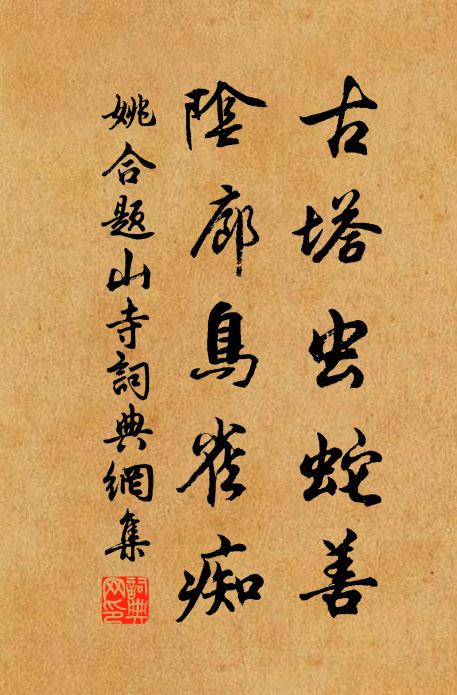 古塔虫蛇善
陰廊鳥雀痴
姚合题山寺詞典網集
詞典网印